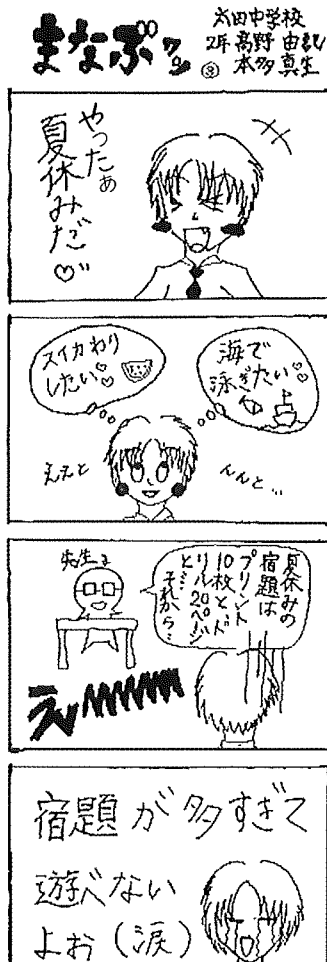 まなぶクン
③
太田中学校
2年 高野 由記
本多 真生
やったぁ
夏休みだ♡
海で
泳ぎたい
スイカわり
したい
んんと…
ええと
先生
夏休みの
宿題は
プリント
10枚と、ド
リル20ページ
と…
それから…
え
宿題が多すぎて
遊べない
よお(涙)